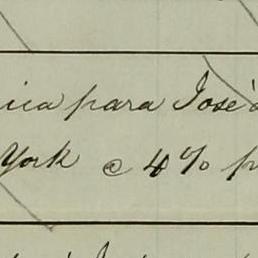 ica para José
York @ 4%